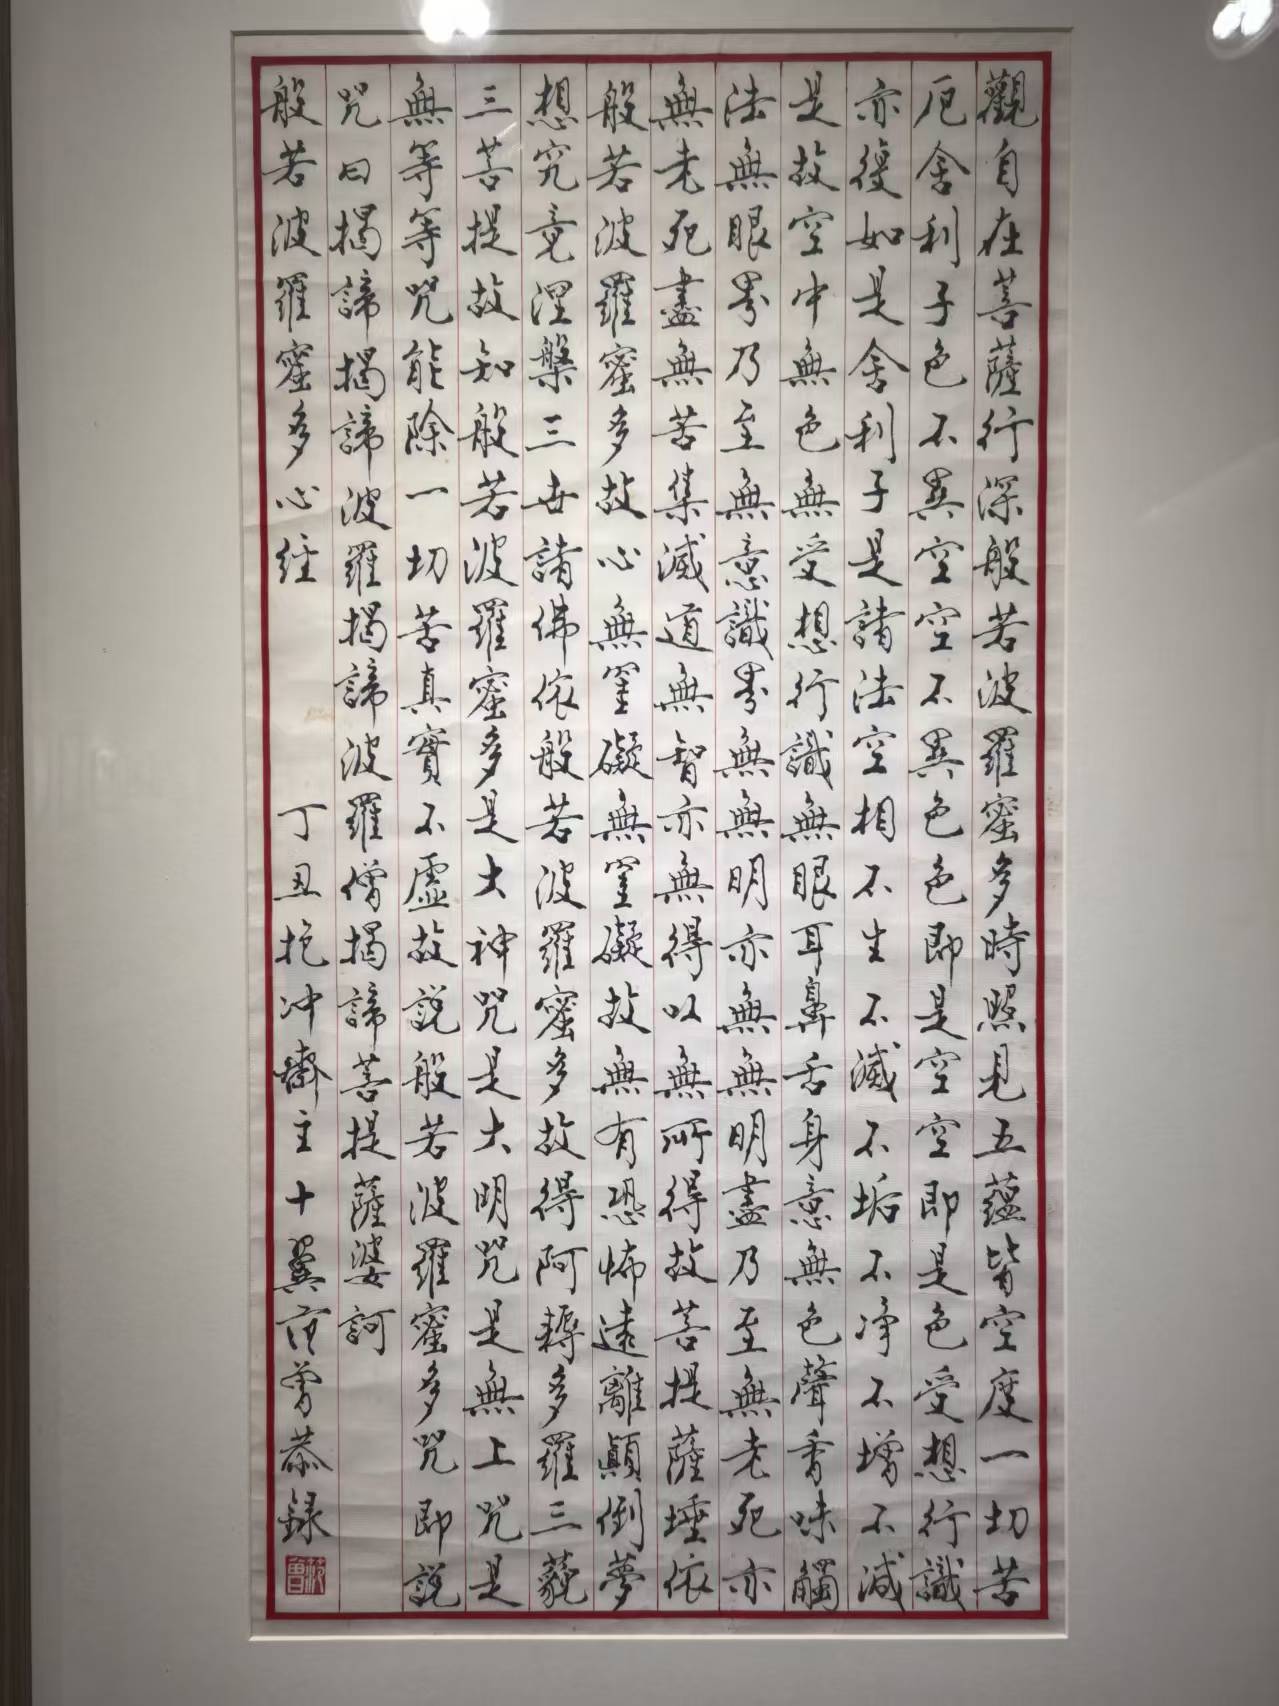 觀自在菩薩行深般若波羅蜜多時照見五蘊皆空度一切苦
厄舍利子色不異空空不異色色即是空空即是色受想行識
亦復如是舍利子是諸法空相不生不滅不垢不淨不增不減
是故空中無色無受想行識無眼耳鼻舌身意無色聲香味觸
法無眼界乃至無意識界無無明亦無無明盡乃至無老死亦
無老死盡無苦集滅道無智亦無得以無所得故菩提薩埵依
般若波羅蜜多故心無罣礙無罣礙故無有恐怖遠離顛倒夢
想究竟涅槃三世諸佛依般若波羅蜜多故得阿耨多羅三藐
三菩提故知般若波羅蜜多是大神咒是大明咒是無上咒是
無等等咒能除一切苦真實不虛故說般若波羅蜜多咒即說
咒曰揭諦揭諦波羅揭諦波羅僧揭諦菩提薩婆訶
般若波羅蜜多心經 丁丑抱冲齋主十翼范曾恭錄
范曾